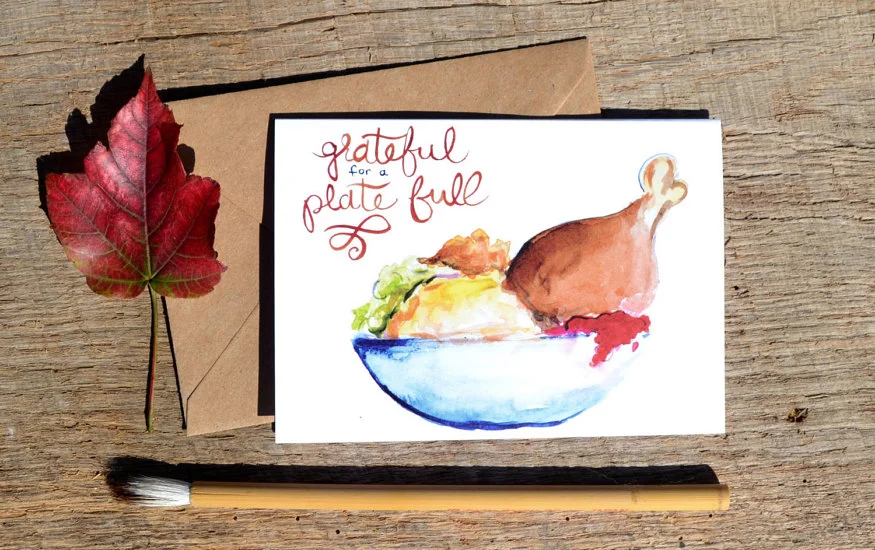 grateful
for a
plate full